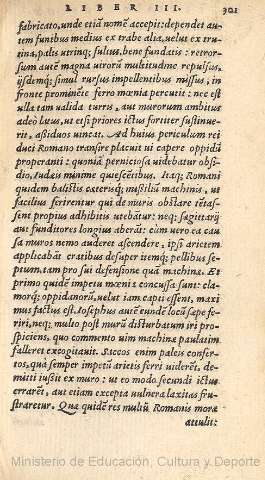 LIBER III. 301
fabricato, unde etiā nomē accepit: dependet au-
tem funibus medius ex trabe alia, uelut ex tru-
tina, palis utrinq; fultus, bene fundatis: retror-
sum autē magna uirorū multitudine repulsus,
ijsdemq; simul rursus impellentibus missus, in
fronte prominēte ferro mœnia percutit: nec est
ulla tam ualida turris, aut murorum ambitus
adeò latus, ut etsi priores ictus fortiter sustinue-
rit, assiduos uincat. Ad huius periculum rei
duci Romano transire placuit ui capere oppidū
properanti: quoniā perniciosa uidebatur obsi-
dio, Iudæis minime quiescētibus. Itaq; Romani
quidem balistis cæterisq; missiliū machinis, ut
facilius ferirentur qui de muris obstare tētas-
sent propius adhibitis utebātur: neq; sagittarij
aut funditores longius aberāt: cùm uero ea cau-
sa muros nemo auderet ascendere, ipsi arietem
applicabāt cratibus desuper itemq; pellibus se-
ptum, tam pro sui defensione quā machinæ. Et
primo quidē impetu mœnia concussa sunt: cla-
morq; oppidanorū, uelut iam capti essent, maxi
mus factus est. Iosephus autē eundē locū sæpe fe-
riri, neq; multo post murū disturbatum iri pro-
spiciens, quo commento uim machinæ paulatim
falleret excogitauit. Saccos enim paleis confer-
tos, quà semper impetū arietis ferri uiderēt, de-
mitti iußit ex muro: ut eo modo secundi ictus
errarēt, aut etiam excepta uulnera laxitas fru-
straretur. Quæ quidē res multū Romanis moræ
attulit:
Ministerio de Educación, Cultura y Deporte